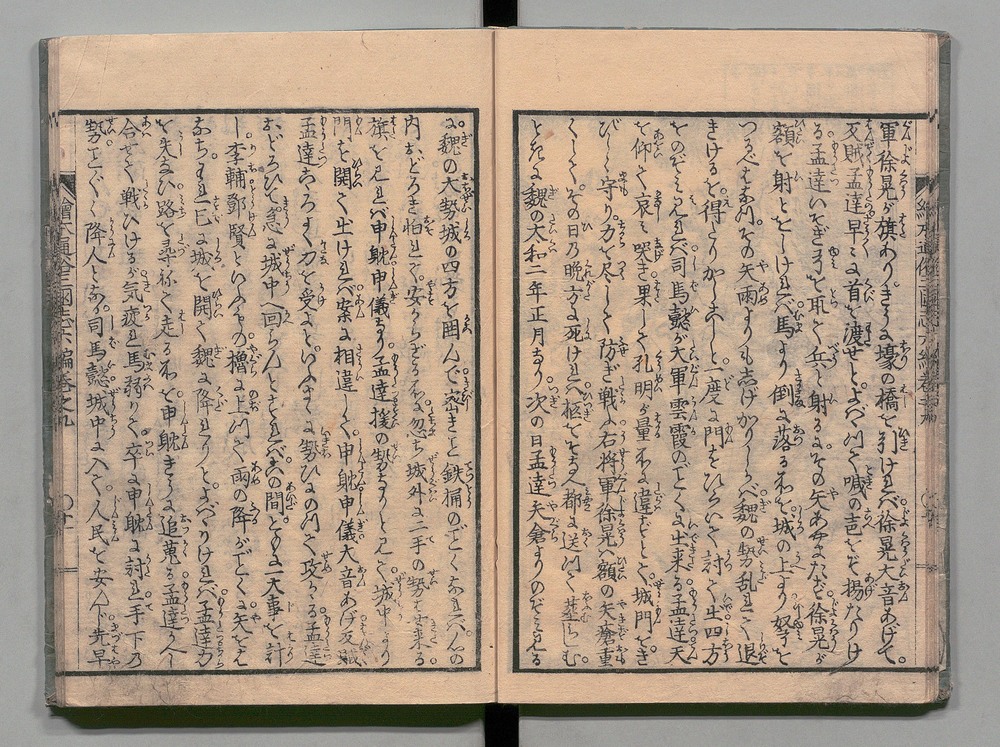 軍徐晃が旗あり。きたる壕の橋を引ければ。徐晃大音あげて。
反賊孟達早々に首を渡せとよばゝつて喊の声をぞ揚たりけ
る。孟達いそぎ弓を取て兵と射るに。その矢あやまたず。徐晃が
額を射とをしければ馬より倒に落るを。城の上より弩を
つるべはなつ。その矢雨よりも志げかりしかば。魏の勢乱れて退
きけるを。得たりかしこしと一度に門をひらいて討て出。四方
をのぞみ見れば。司馬懿が大軍雲霞のごとくに出来る。孟達天
を仰ぎて哀み哭き。果して孔明が量に違ずとて。城門をき
びしく守り。力を尽して防ぎ戦ふ。右将軍徐晃は額の矢瘡重
くして。その日の晩方に死ければ。柩をさめ都に送つて葬らしむ。
ときに魏の太和二年正月なり。次の日孟達矢倉よりのぞみ見る
に。魏の大勢城の四方を囲んで密きこと鉄桶のごとくなれば。心の
内おどろき怕れて。安からざる処に。忽ち城外に二手の勢はせ来る。
旗を見れば申耽申儀なり。孟達援の勢なりと見て。城中より
門を開て出ければ。案に相違して。申耽申儀大音あげ。反賊
孟達こゝろよく力を受よといふまゝに。勢ひにのつて攻かゝる。孟達
おどろひて急に城中へ回らんとすれば。この間とみに一大事を計
し李輔鄧賢といふもの櫓に上つて。雨の降がごとくに矢をは
なち。われ已に城を開て魏に降れりとよばゝりければ。孟達力
を失なひ。路を尋ねて走るを。申耽きうに追蒐る。孟達かへし
合せて戦ひけるが。気疲れ馬弱りて。卒に申耽に討れ。手下の
勢ことごとく降人となる。司馬懿城中に入て人民を安んじ。先早
繪本通俗三國志六編巻之九